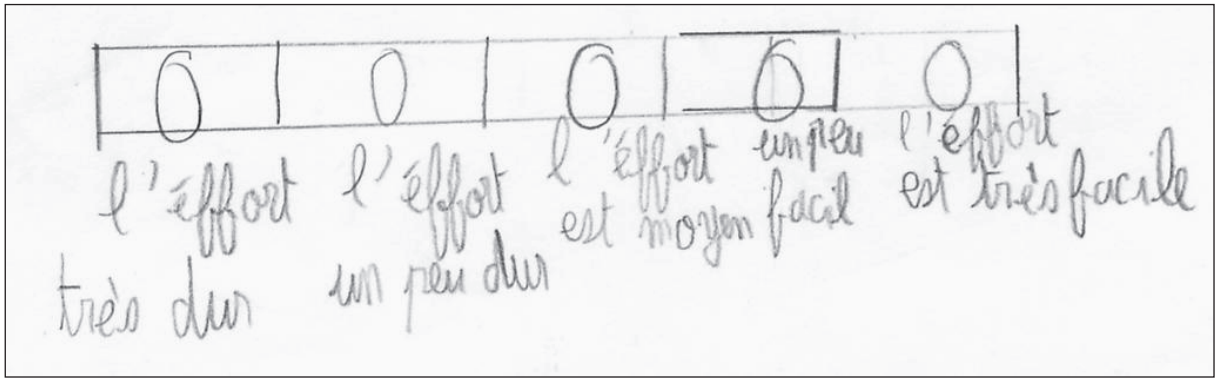 l'éffort
très dur
l'éffort
un peu dur
l'éffort
est moyen
un peu
facil
l'éffort
est très facile